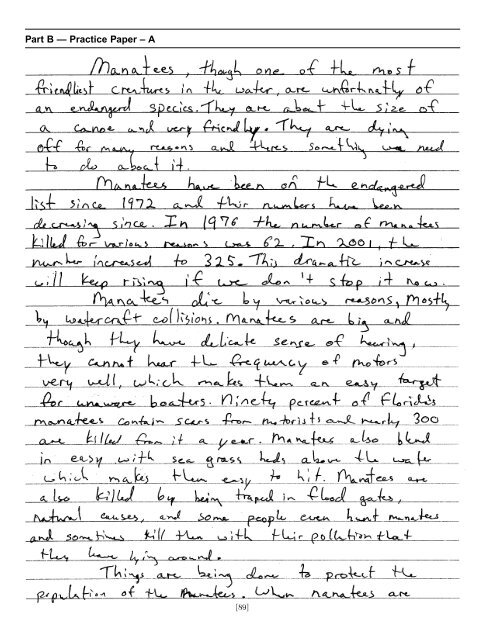 Part B — Practice Paper – A
Manatees, though one of the most
friendliest creatures in the water, are unfortinatly of
an endangerd species. They are about the size of
a canoe and very friendly. They are dying
off for many reasons and theres somethig we need
to do about it.
Manatees have been on the endangered
list since 1972 and thir numbers have been
decreasing since. In 1976 the number of manatees
killed for various reasons was 62. In 2001, the
number increased to 325. This dramatic increase
will keep rising if we don't stop it now.
Manatees die by various reasons, Mostly
by watercraft collisions. Manatees are big and
though they have delicate sense of hearing,
they cannot hear the frequency of motors
very well, which makes them an easy target
for unaware boaters. Ninety percent of Florida's
manatees contain scars from motorists and nearly 300
are killed from it a year. Manatees also blend
in easy with sea grass beds above the water
which makes them easy to hit. Manatees are
also killed by being traped in flood gates,
natural causes, and some people even hunt manatees
and sometimes kill then with their pollution that
they leave lying around.
Things are being done to protect the
population of the manatees. When manatees are
[89]